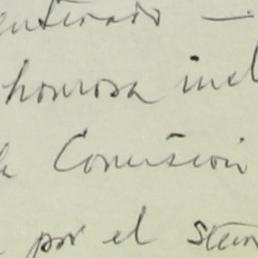 enterado —
honrosa incl
la Comision
por el Stein